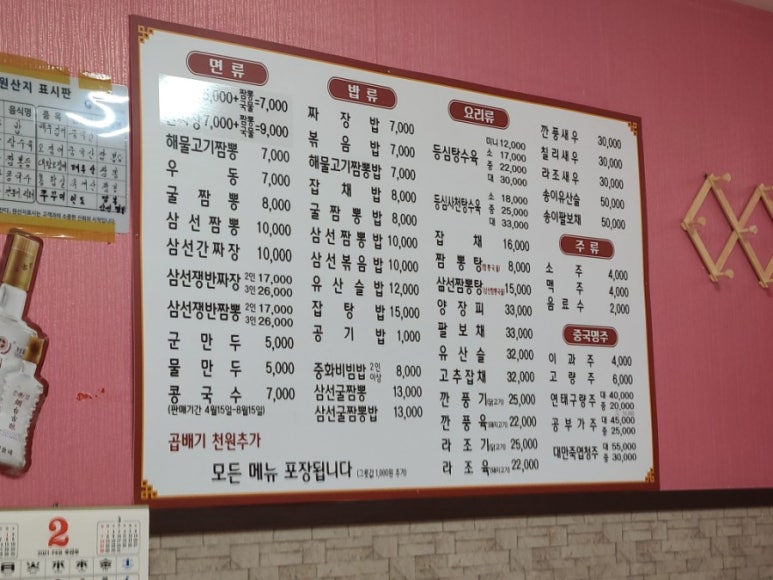 원산지 표시판
음식명
품목
면 류
,000+짬뽕국물=7,000
7,000+짬뽕국물=9,000
해물고기짬뽕 7,000
우 동 7,000
굴 짬 뽕 8,000
삼 선 짬 뽕 10,000
삼선간짜장 10,000
삼선쟁반짜장 2인 17,000
3인 26,000
삼선쟁반짬뽕 2인 17,000
3인 26,000
군 만 두 5,000
물 만 두 5,000
콩 국 수 7,000
(판매기간 4월15일~8월15일)
곱배기 천원추가
모든 메뉴 포장됩니다 (그릇값 1,000원 추가)
밥 류
짜 장 밥 7,000
볶 음 밥 7,000
해물고기짬뽕밥 7,000
잡 채 밥 8,000
굴 짬 뽕 밥 8,000
삼 선 짬 뽕 밥 10,000
삼 선 볶 음 밥 10,000
유 산 슬 밥 12,000
잡 탕 밥 15,000
공 기 밥 1,000
중화비빔밥 2인이상 8,000
삼선굴짬뽕 13,000
삼선굴짬뽕밥 13,000
요리류
등심탕수육 미니 12,000
소 17,000
중 22,000
대 30,000
등심사천탕수육 소 18,000
중 25,000
대 33,000
잡 채 16,000
짬 뽕 탕(짬뽕국물) 8,000
삼선짬뽕탕(삼선짬뽕국물) 15,000
양 장 피 33,000
팔 보 채 33,000
유 산 슬 32,000
고추잡채 32,000
깐 풍 기(닭고기) 25,000
깐 풍 육(돼지고기) 22,000
라 조 기(닭고기) 25,000
라 조 육(돼지고기) 22,000
깐풍새우 30,000
칠리새우 30,000
라조새우 30,000
송이유산슬 50,000
송이팔보채 50,000
주 류
소 주 4,000
맥 주 4,000
음 료 수 2,000
중국명주
이 과 주 4,000
고 량 주 6,000
연태구량주 대 40,000
중 20,000
공 부 가 주 대 45,000
중 25,000
대만죽엽청주 대 55,000
중 30,000
2